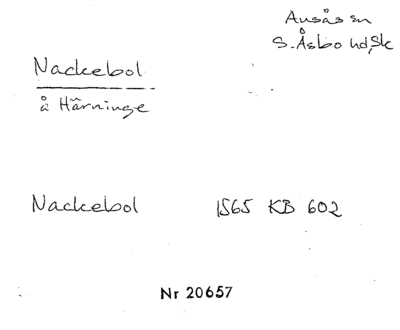 Ausås sn
S. Åsbo hd, Sk
Nackebol
å Härninge
Nackebol 1565 KB 602
Nr 20657